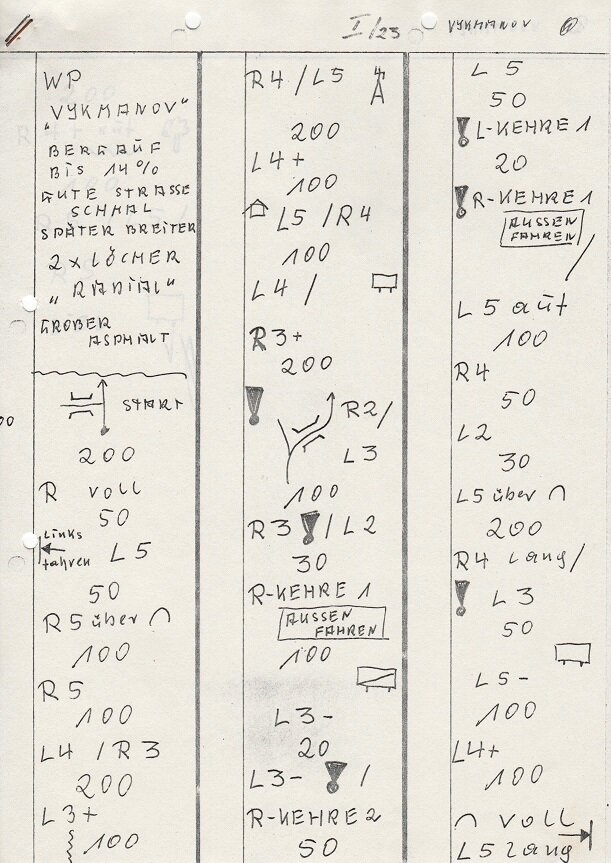 I/23 VYKMANOV 1
WP
"VYKMANOV"
BERGAUF
BIS 14%
GUTE STRASSE
SCHMAL
SPÄTER BREITER
2 x LÖCHER
"RADIAL"
GROBER
ASPHALT
START
200
R voll
50
Links
fahren L5
50
R5 über ∩
100
R5
100
L4 / R3
200
L3+
100
R4 / L5
200
L4+
100
L5 / R4
100
L4 /
R3+
200
! R2/
L3
100
R3 ! / L2
30
R-KEHRE 1
AUSSEN
FAHREN
100
L3-
20
L3- ! /
R-KEHRE 2
50
L5
50
! L-KEHRE 1
20
! R-KEHRE 1
AUSSEN
FAHREN
/
L5 auf
100
R4
50
L2
30
L5 über ∩
200
R4 lang/
! L3
50
L5-
100
L4+
100
∩ voll
L5 lang